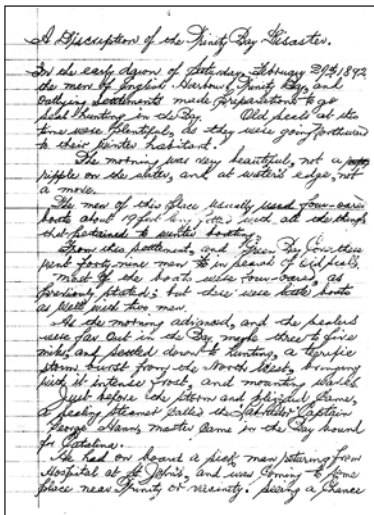 A Discription of the Trinity Bay Disaster.
In the early dawn of Saturday, February 27th 1892
the men of English Harbour, Trinity Bay, and
outlying settlements made preparations to go
seal hunting in the Bay. Old seals at this
time were plentiful, as they were going northward
to their winter habitant.
The morning was very beautiful, not a
ripple on the water, and at water's edge, not
a move.
The men of this place usually used four-oared
boats about 19 feet long fitted with all the things
that pertained to winter boating.
From this settlement, and Green Bay Cove there
went forty-nine men in search of Old seals,
most of the boats were four-oared, as
previously stated; but there were little boats
as well with two men.
As the morning advanced, and the sealers
were far out in the Bay, maybe three to five
miles, and settled down to hunting, a terrific
storm burst from the North West, bringing
with it intense frost, and mounting waves
Just before the storm and blizzard came,
a sealing steamer called the Labrador Captain
George Hann, master came in the Bay bound
for Catalina.
He had on board a sick man returing from
Hospital at St John's, and was coming to some
place near Trinity or vicinity. Seeing a chance